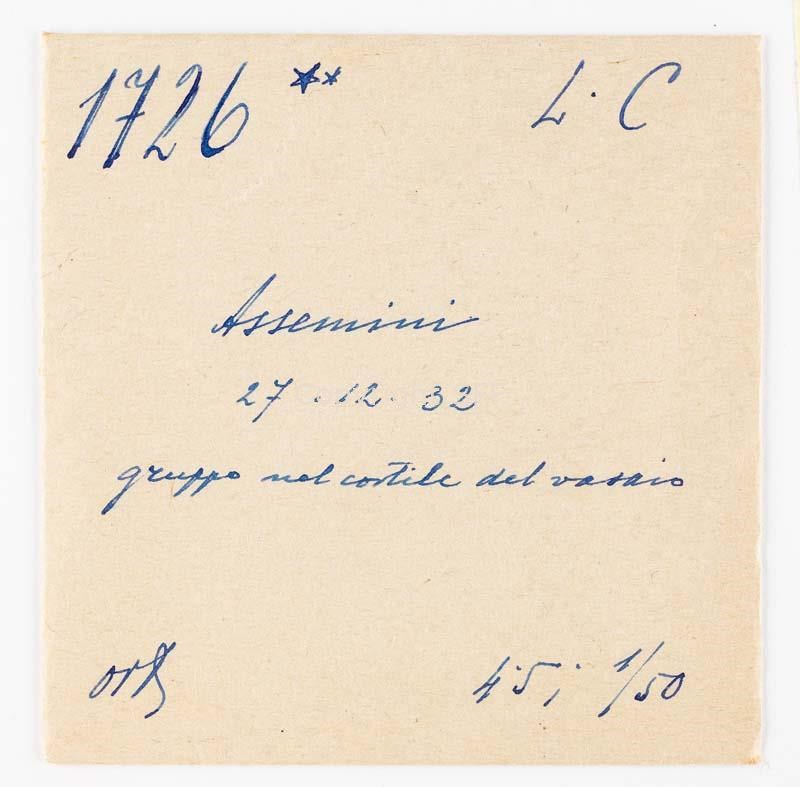 1726 ** L. C
Assemini
27 . 12 . 32
gruppo nel cortile del vasaio
4.5; 1/50